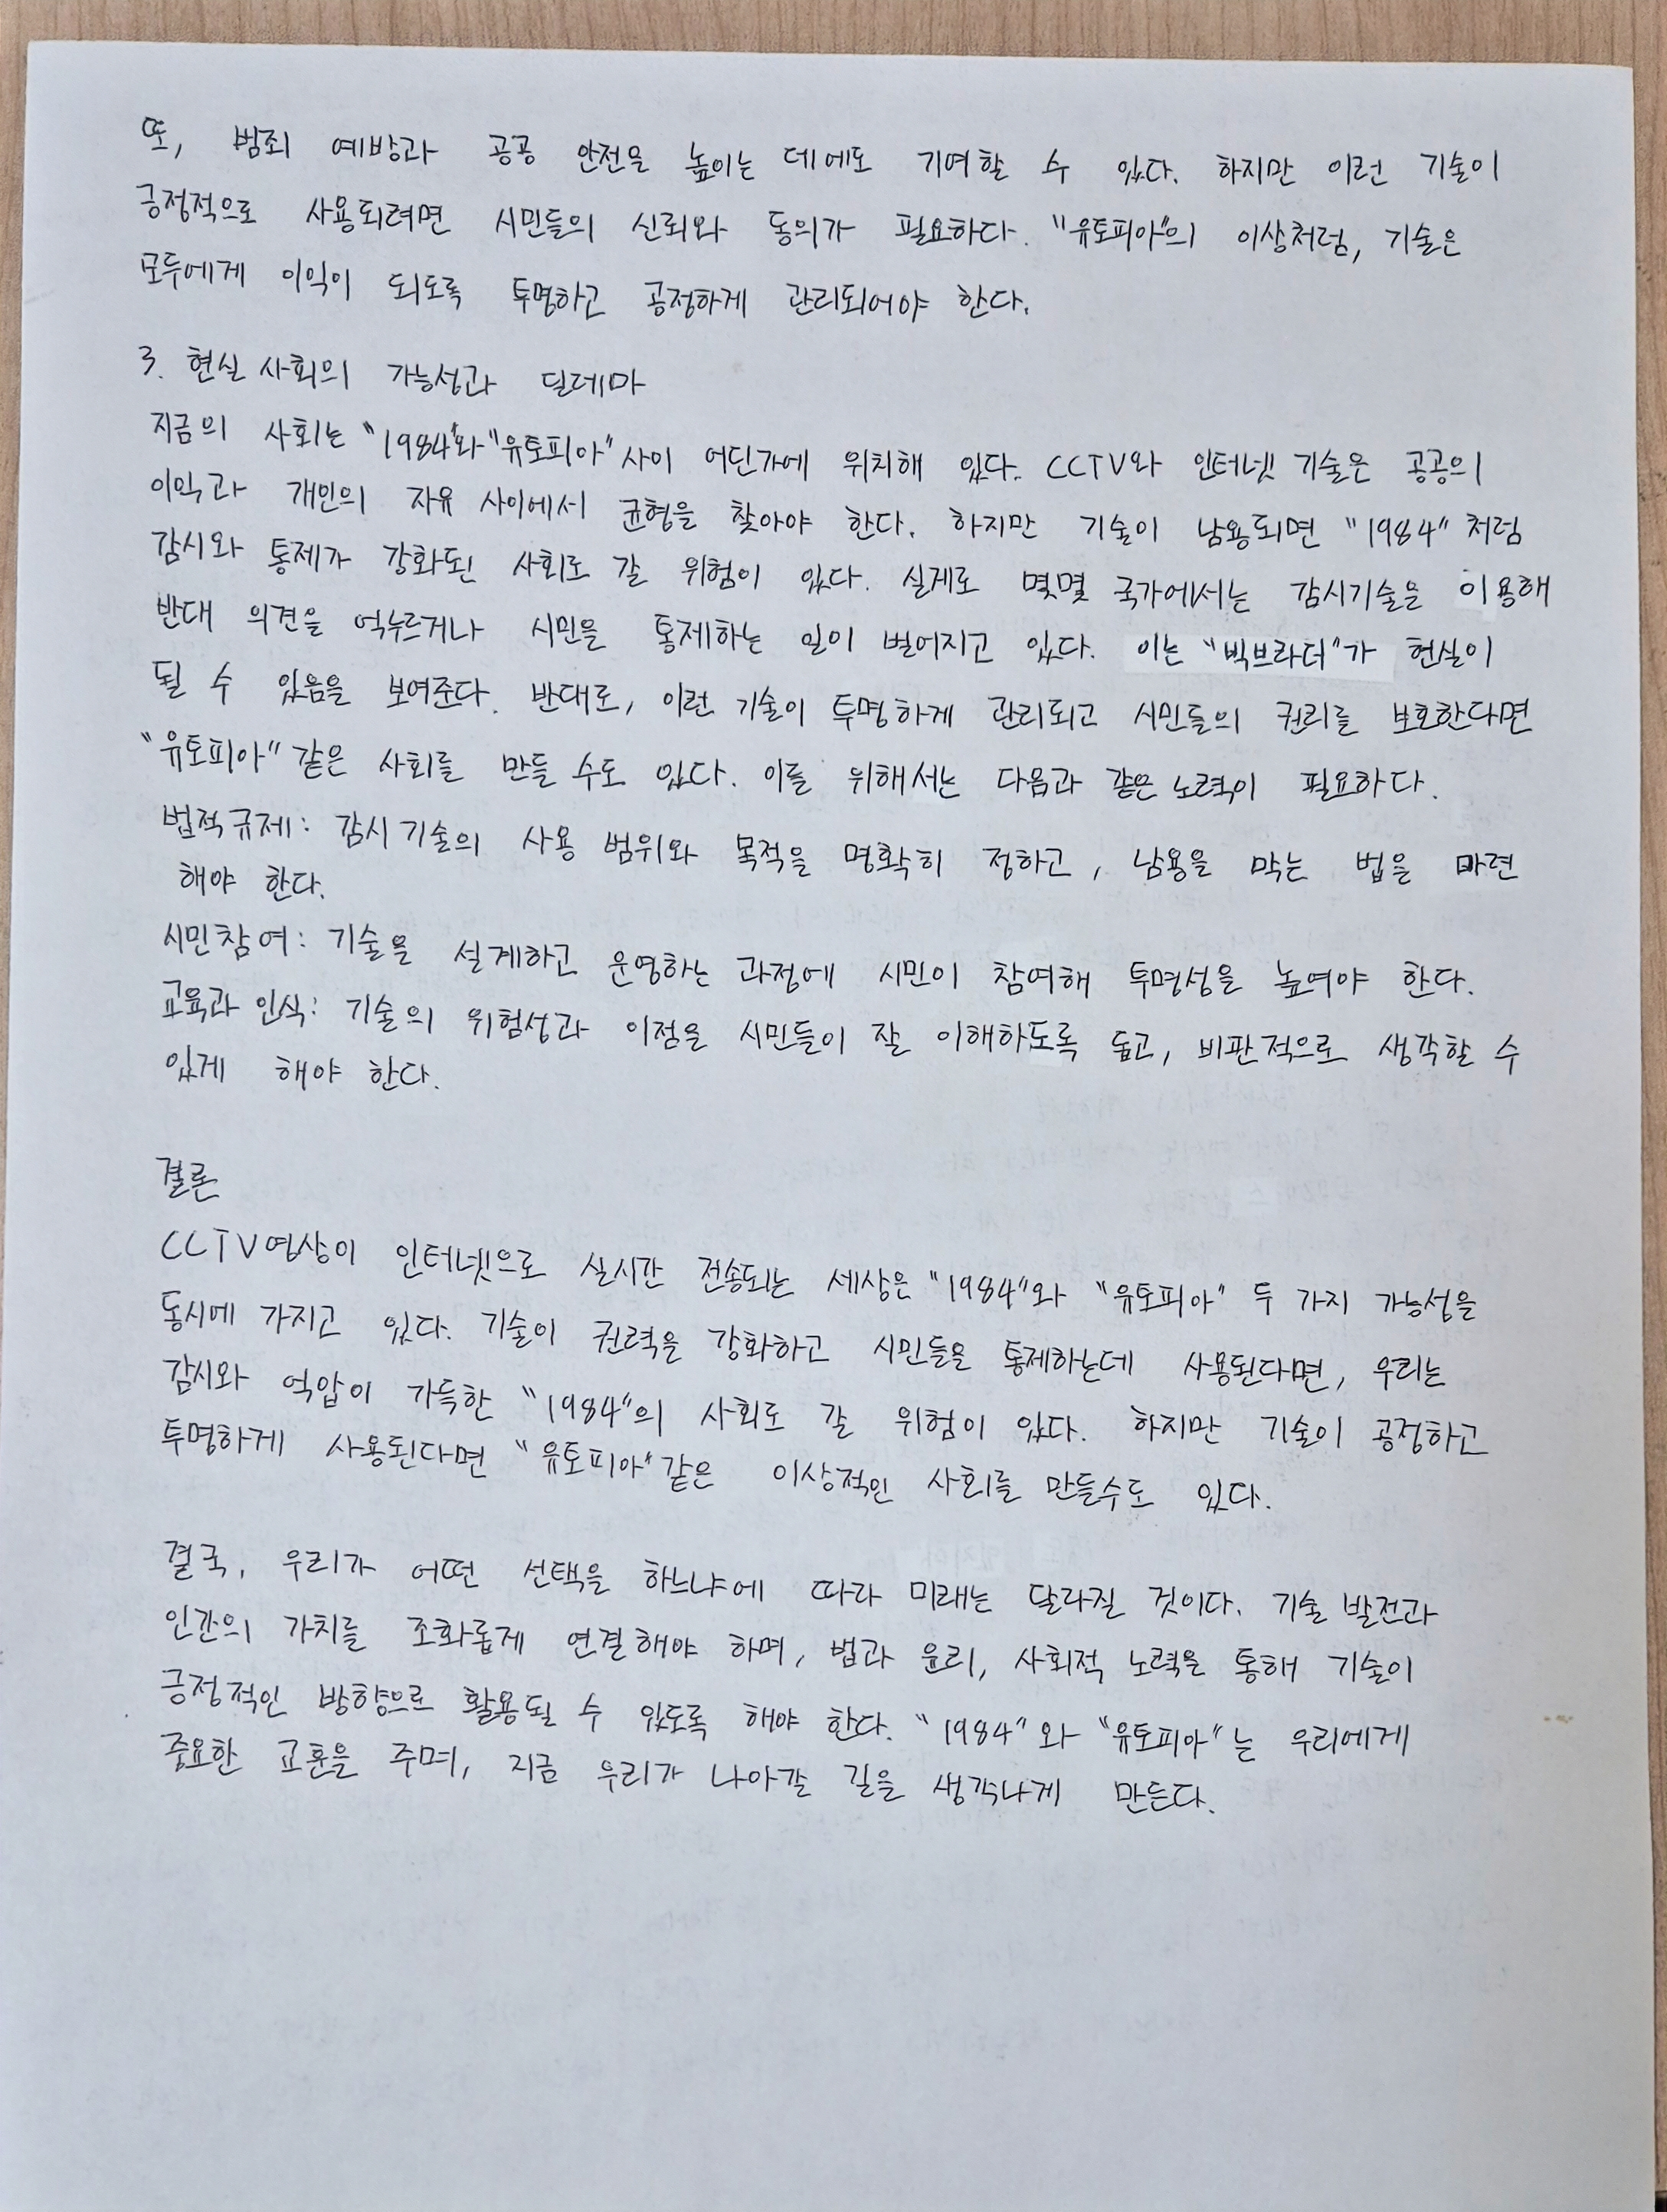 또, 범죄 예방과 공공 안전을 높이는 데에도 기여할 수 있다. 하지만 이런 기술이
긍정적으로 사용되려면 시민들의 신뢰와 동의가 필요하다. "유토피아"의 이상처럼, 기술은
모두에게 이익이 되도록 투명하고 공정하게 관리되어야 한다.
3. 현실 사회의 가능성과 딜레마
지금의 사회는 "1984"와 "유토피아" 사이 어딘가에 위치해 있다. CCTV와 인터넷 기술은 공공의
이익과 개인의 자유 사이에서 균형을 찾아야 한다. 하지만 기술이 남용되면 "1984" 처럼
감시와 통제가 강화된 사회로 갈 위험이 있다. 실제로 몇몇 국가에서는 감시기술을 이용해
반대 의견을 억누르거나 시민을 통제하는 일이 벌어지고 있다. 이는 "빅브라더"가 현실이
될 수 있음을 보여준다. 반대로, 이런 기술이 투명하게 관리되고 시민들의 권리를 보호한다면
"유토피아" 같은 사회를 만들 수도 있다. 이를 위해서는 다음과 같은 노력이 필요하다.
법적규제: 감시 기술의 사용 범위와 목적을 명확히 정하고, 남용을 막는 법을 마련
해야 한다.
시민참여: 기술을 설계하고 운영하는 과정에 시민이 참여해 투명성을 높여야 한다.
교육과 인식: 기술의 위험성과 이점을 시민들이 잘 이해하도록 돕고, 비판적으로 생각할 수
있게 해야 한다.
결론
CCTV영상이 인터넷으로 실시간 전송되는 세상은 "1984"와 "유토피아" 두 가지 가능성을
동시에 가지고 있다. 기술이 권력을 강화하고 시민들을 통제하는데 사용된다면, 우리는
감시와 억압이 가득한 "1984"의 사회로 갈 위험이 있다. 하지만 기술이 공정하고
투명하게 사용된다면 "유토피아" 같은 이상적인 사회를 만들수도 있다.
결국, 우리가 어떤 선택을 하느냐에 따라 미래는 달라질 것이다. 기술 발전과
인간의 가치를 조화롭게 연결해야 하며, 법과 윤리, 사회적 노력을 통해 기술이
긍정적인 방향으로 활용될 수 있도록 해야 한다. "1984"와 "유토피아"는 우리에게
중요한 교훈을 주며, 지금 우리가 나아갈 길을 생각나게 만든다.